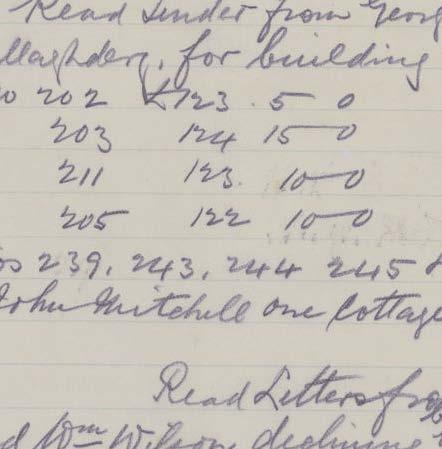 Read Tender from Georg
llaghderg, for building
o 202 £123. 5 0
203 124 15 0
211 123. 10 0
205 122 10 0
os 239, 243, 244 245
John Mitchell one Cottage
Read Letters fro
d Wm Wilson declining